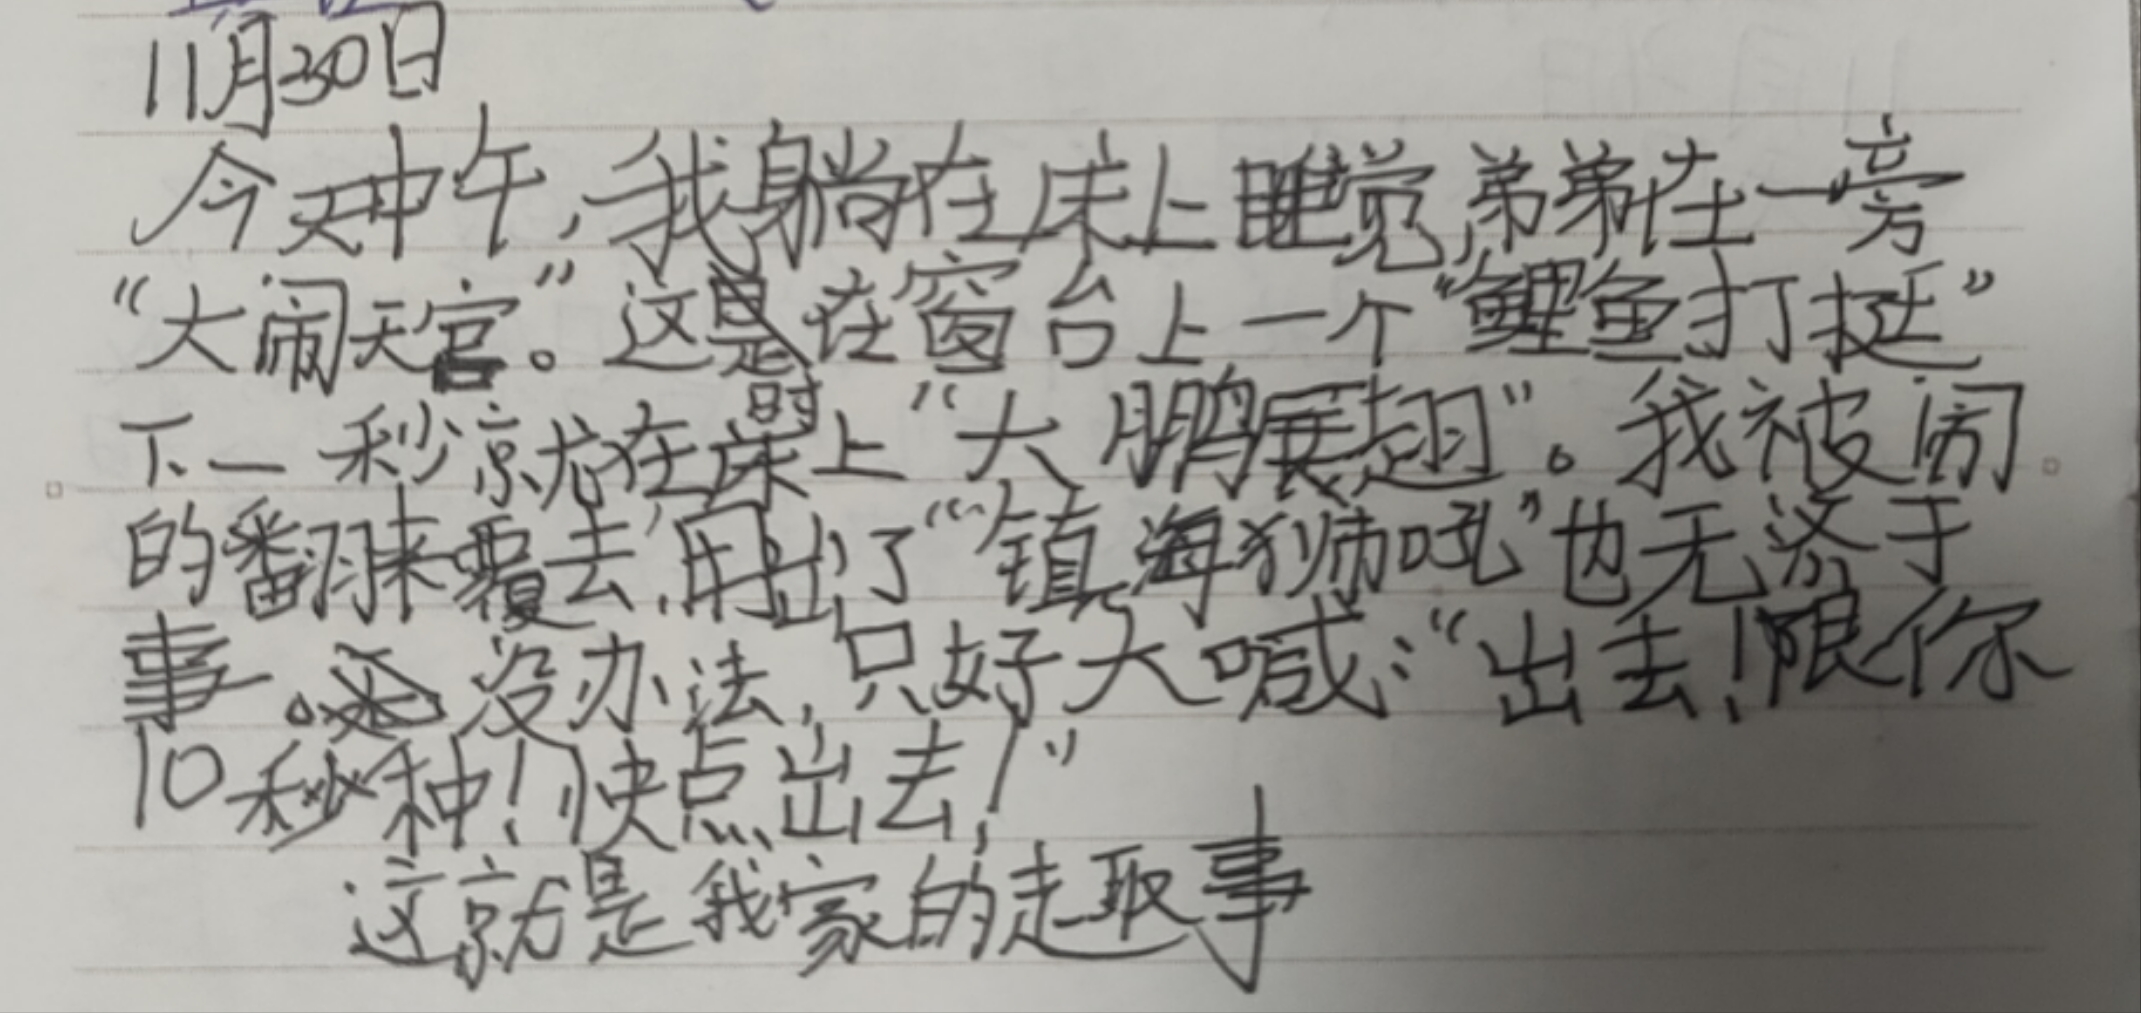 11月30日
今天中午，我躺在床上睡觉，弟弟在一旁
“大闹天宫”。这时在窗台上一个“鲤鱼打挺”
下一秒就在床上“大鹏展翅”。我被闹
的翻来覆去，用出了“镇海狮吼”也无济于
事。没办法，只好大喊：“出去！限你
10秒种！快点出去！”
这就是我家的趣事